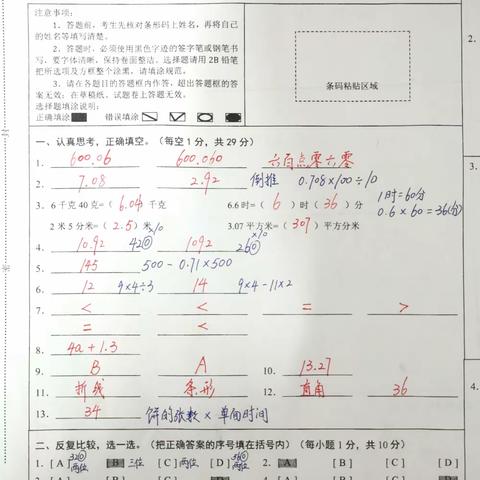 注意事项:
1、答题前，考生先核对条形码上姓名，再将自己
的姓名等填写清楚。
2、答题时，必须使用黑色字迹的签字笔或钢笔书
写，要字体清晰，保持卷面整洁。选择题请用 2B 铅笔
把所选项及方框整个涂黑，请填涂规范。
3、请在各题目的答题框内作答，超出答题框的答
案无效；在草稿纸、试题卷上答题无效。
选择题填涂说明:
正确填涂 错误填涂
条码粘贴区域
2.
一、认真思考，正确填空。（每空 1 分，共 29 分）
1. 600.06 600.060 六百点零六零
2. 7.08 2.92 倒推 0.708×100÷10
3. 6 千克 40 克=（ 6.04 ）千克 6.6 时=（ 6 ）时（ 36 ）分 1时=60分
0.6×60=36(分)
2 米 5 分米=（ 2.5 ）米 3.07 平方米=（ 307 ）平方分米
4. 10.92 420 ×10 1092 260 ×10
5. 145 500-0.71×500
6. 12 9×4÷3 14 9×4-11×2
7. < < = >
= <
8. 4a+1.3
9. B A 10. 13.27
11. 折线 条形 12. 直角 36
13. 34 饼的张数×单面时间
二、反复比较，选一选。（把正确答案的序号填在括号内）（每小题 1 分，共 10 分）
1. [A] 320 两位 [B] 三位 [C] 两位 [D] 360 两位 2. [A] [B] [C] [D]
3.
4.